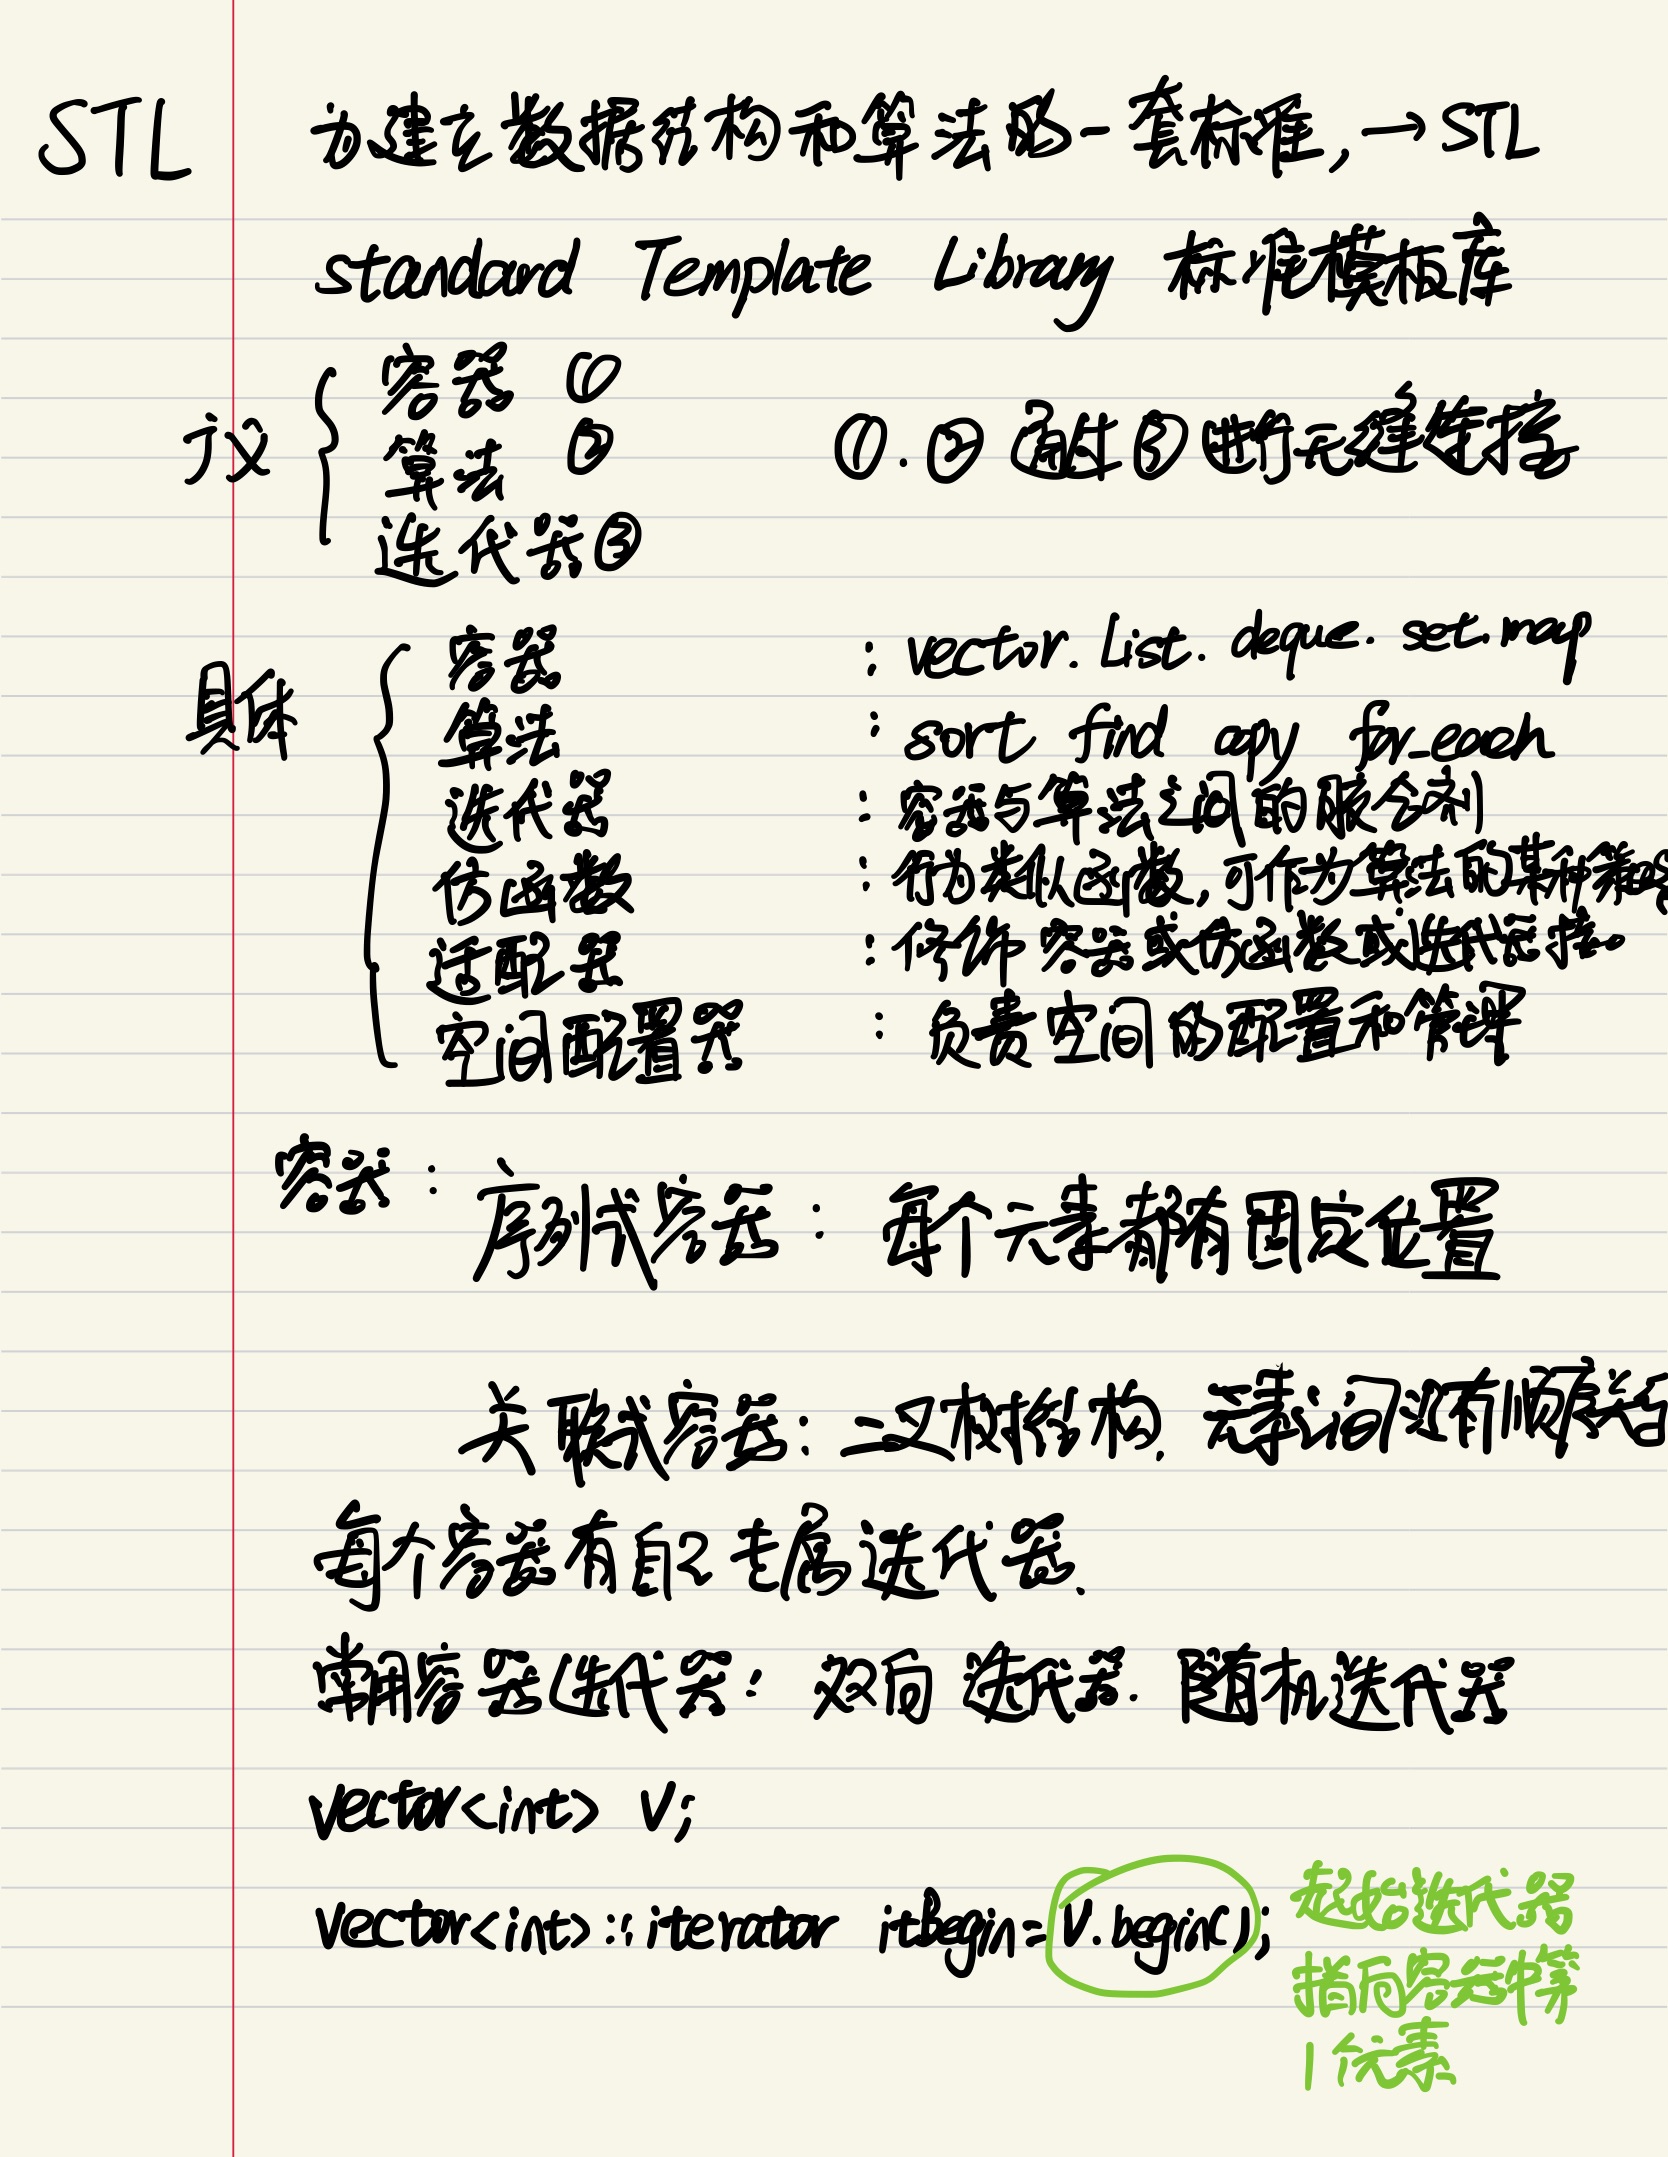 STL 为建立数据结构和算法的一套标准,→STL
standard Template Library 标准模板库
广义
容器 ①
算法 ②
迭代器③
①.②通过③进行无缝连接
具体
容器 : vector. List. deque. set. map
算法 : sort find copy for_each
迭代器 : 容器与算法之间的胶合剂
仿函数 : 行为类似函数,可作为算法的某种策略
适配器 : 修饰容器或仿函数或迭代器接口
空间配置器 : 负责空间的配置和管理
容器:
序列式容器: 每个元素都有固定位置
关联式容器: 二叉树结构. 元素之间没有顺序关
每个容器有自己专属迭代器.
常用容器迭代器: 双向迭代器. 随机迭代器
vector<int> v;
vector<int>::iterator itBegin=v.begin();
起始迭代器
指向容器中第
1个元素